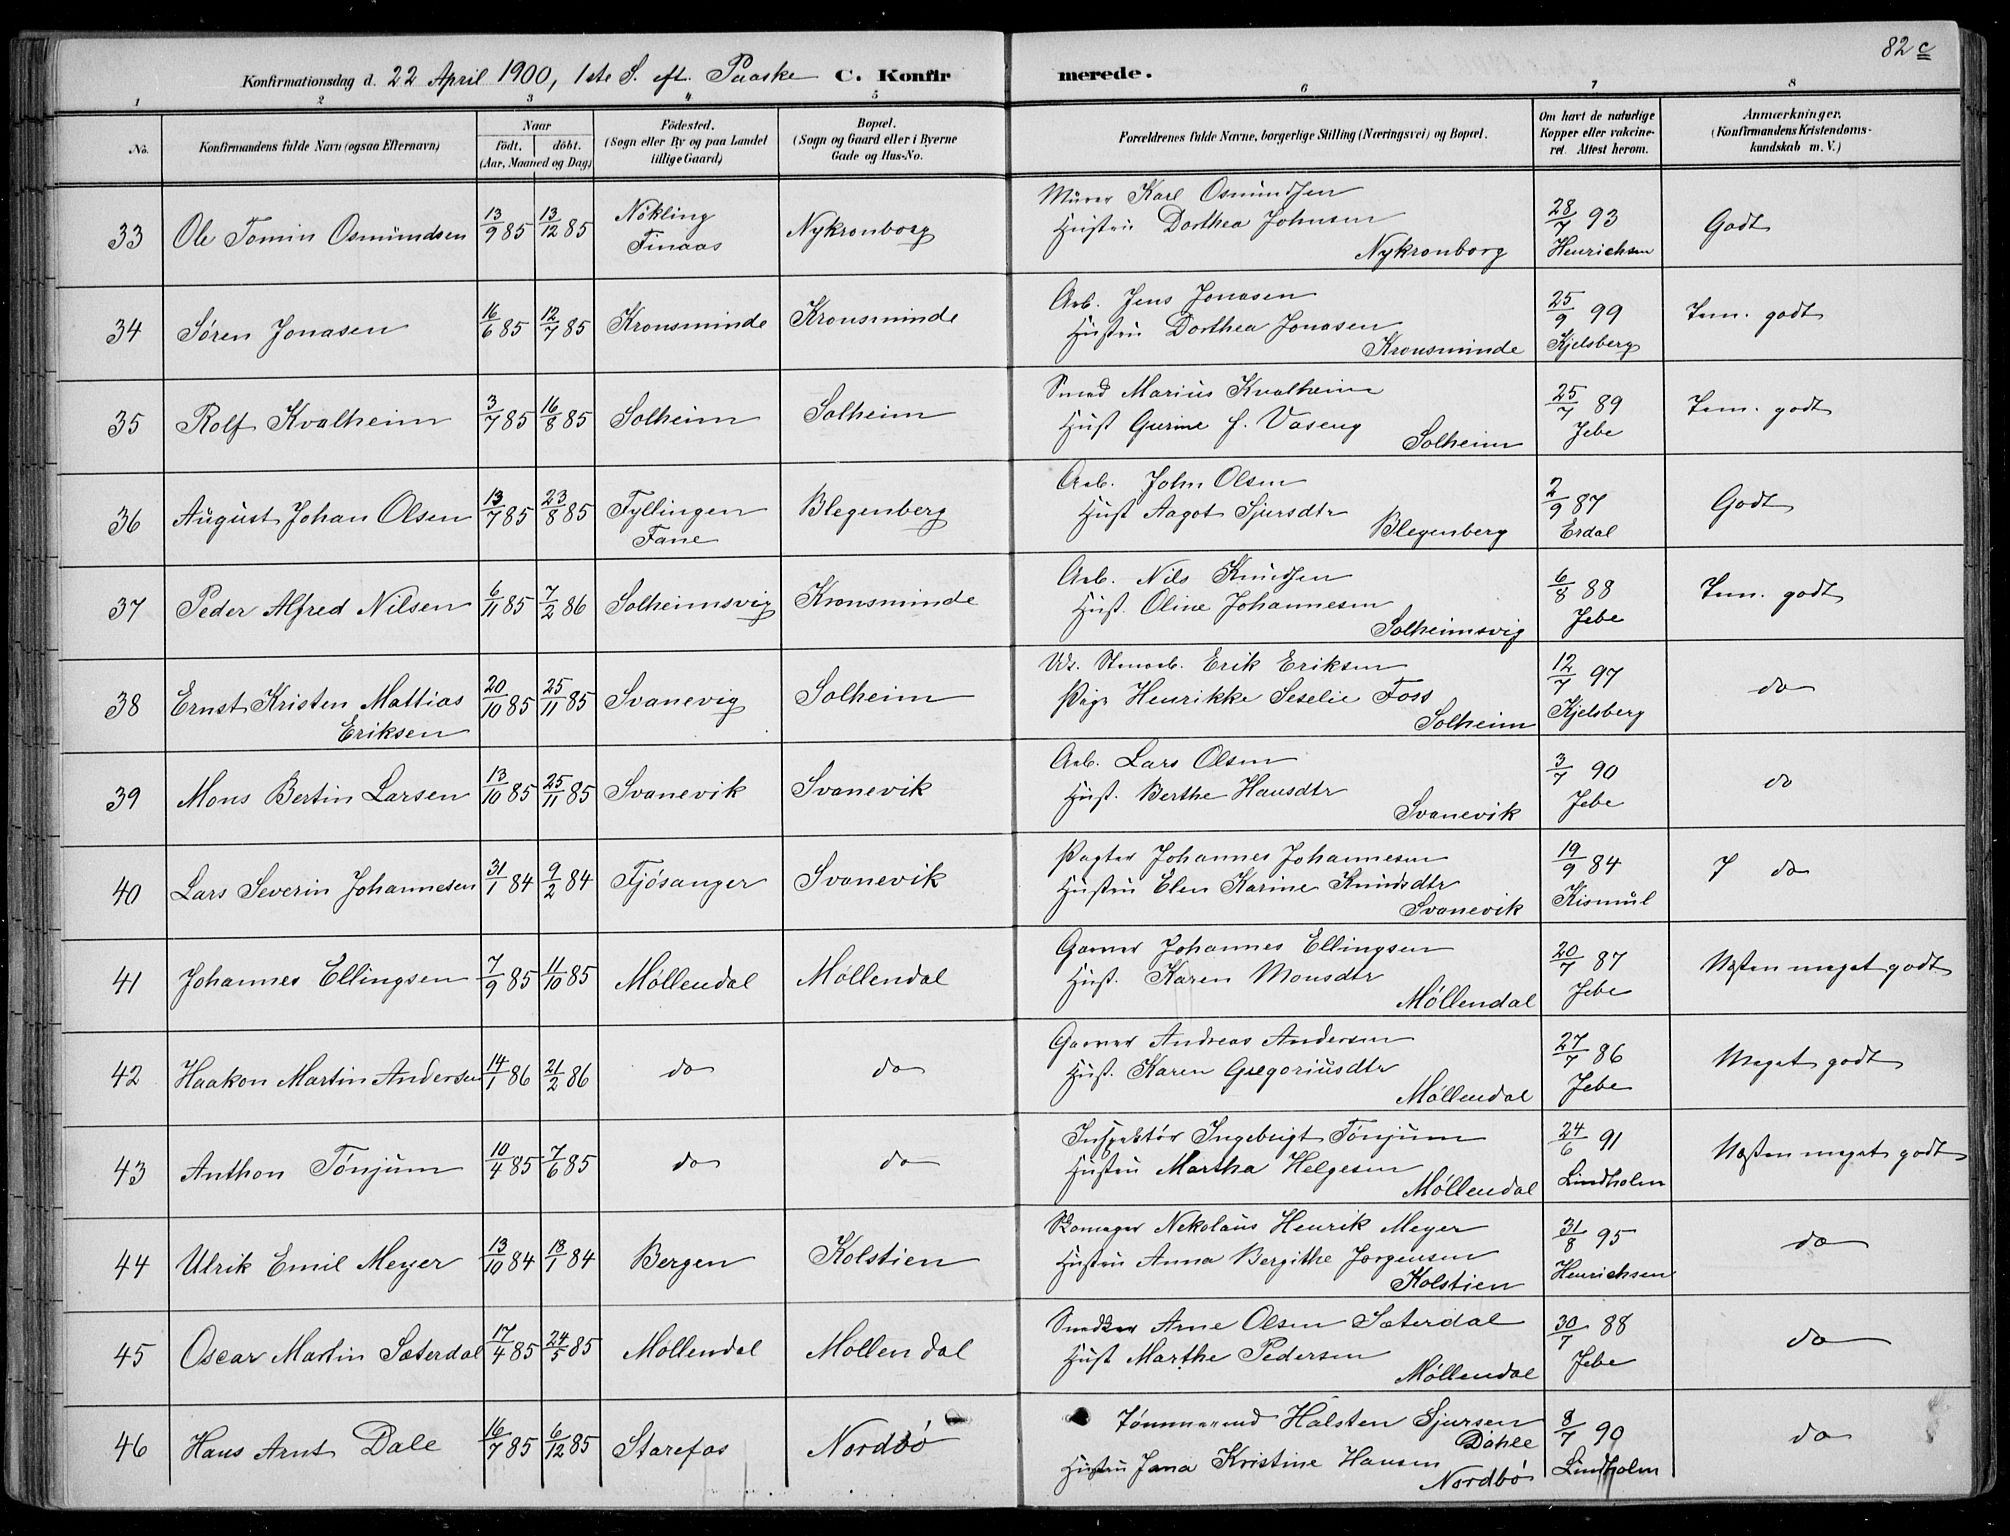 82 c
Konfirmationsdag d. 22 April 1900, 1ste S. eft. Paaske C. Konfirmerede.
1 2 3 4 5 6 7 8
No. Konfirmandens fulde Navn (ogsaa Efternavn) Naar født. døbt. (Aar, Maaned og Dag) Fødested. (Sogn eller By og paa Landet tillige Gaard) Bopæl. (Sogn og Gaard eller i Byerne Gade og Hus-No. Forældrenes fulde Navne, borgerlige Stilling (Næringsvei) og Bopæl. Om havt de naturlige Kopper eller vakcineret. Attest herom. Anmærkninger. (Konfirmandens Kristendomskundskab m. V.)
33 Ole Tomin Osmundsen 13/9 85 13/12 85 Nökling Finaas Nykronborg Murer Karl Osmundsen
Hustru Dorthea Johnsen
Nykronborg 28/7 93 Henrichsen Godt
34 Sören Jonasen 16/6 85 12/7 85 Kronsminde Kronsminde Arb. Jens Jonasen
Hustru Dorthea Jonasen
Kronsminde 25/9 99 Kjelsberg Tem. godt
35 Rolf Kvalheim 3/7 85 16/8 85 Solheim Solheim Smed Marius Kvalheim
Hust Gurine f. Vaseng
Solheim 25/7 89 Jebe Tem. godt
36 August Johan Olsen 13/7 85 23/8 85 Fyllingen Fane Blegenberg Arb. John Olsen
Hust Aagot Sjursdtr
Blegenberg 2/9 87 Erdal Godt
37 Peder Alfred Nilsen 6/11 85 7/2 86 Solheimsvig Kronsminde Arb. Nils Knudsen
Hust. Oline Johannesen
Solheimsvig 6/8 88 Jebe Tem. godt
38 Ernst Kristen Mattias Eriksen 20/10 85 25/11 85 Svanevig Solheim Erik Eriksen
Pige Henrikke Seselie Foss
Solheim 12/7 97 Kjelsberg do
39 Mons Bertin Larsen 13/10 85 25/11 85 Svanevik Svanevik Arb. Lars Olsen
Hust. Berthe Hansdtr
Svanevik 3/7 90 Jebe do
40 Lars Severin Johannesen 31/1 84 9/2 84 Fjösanger Svanevik Pagter Johannes Johannesen
Hustru Elen Karine Knudsdtr
Svanevik 19/9 84 Kismul do
41 Johannes Ellingsen 7/9 85 11/10 85 Møllendal Møllendal Garver Johannes Ellingsen
Hust. Karen Monsdtr
Møllendal 20/7 87 Jebe Næsten meget godt
42 Haakon Martin Andersen 14/1 86 21/2 86 do do Garver Andreas Andersen
Hust. Karen Gregoriusdtr
Møllendal 27/7 86 Jebe Meget godt
43 Anthon Tönjum 10/4 85 7/6 85 do do Inspektör Ingebrigt Tönjum
Hustru Martha Helgesen
Møllendal 24/6 91 Lindholm Næsten meget godt
44 Ulrik Emil Meyer 13/10 84 18/1 84 Bergen Kolstien Skomager Nekolaus Henrik Meyer
Hustru Anna Bergithe Jorgensen
Kolstien 31/8 95 Henrichsen do
45 Oscar Martin Sæterdal 17/4 85 24/5 85 Møllendal Møllendal Snedker Arne Olsen Sæterdal
Hust Marthe Pedersen
Møllendal 30/7 88 Jebe do
46 Hans Arnt Dale 16/7 85 6/12 85 Starefos Nordbö Tömmermd Halsten Sjursen Dahle
Hustru Jana Kristine Hansen
Nordbö 8/7 90 Lindholm do